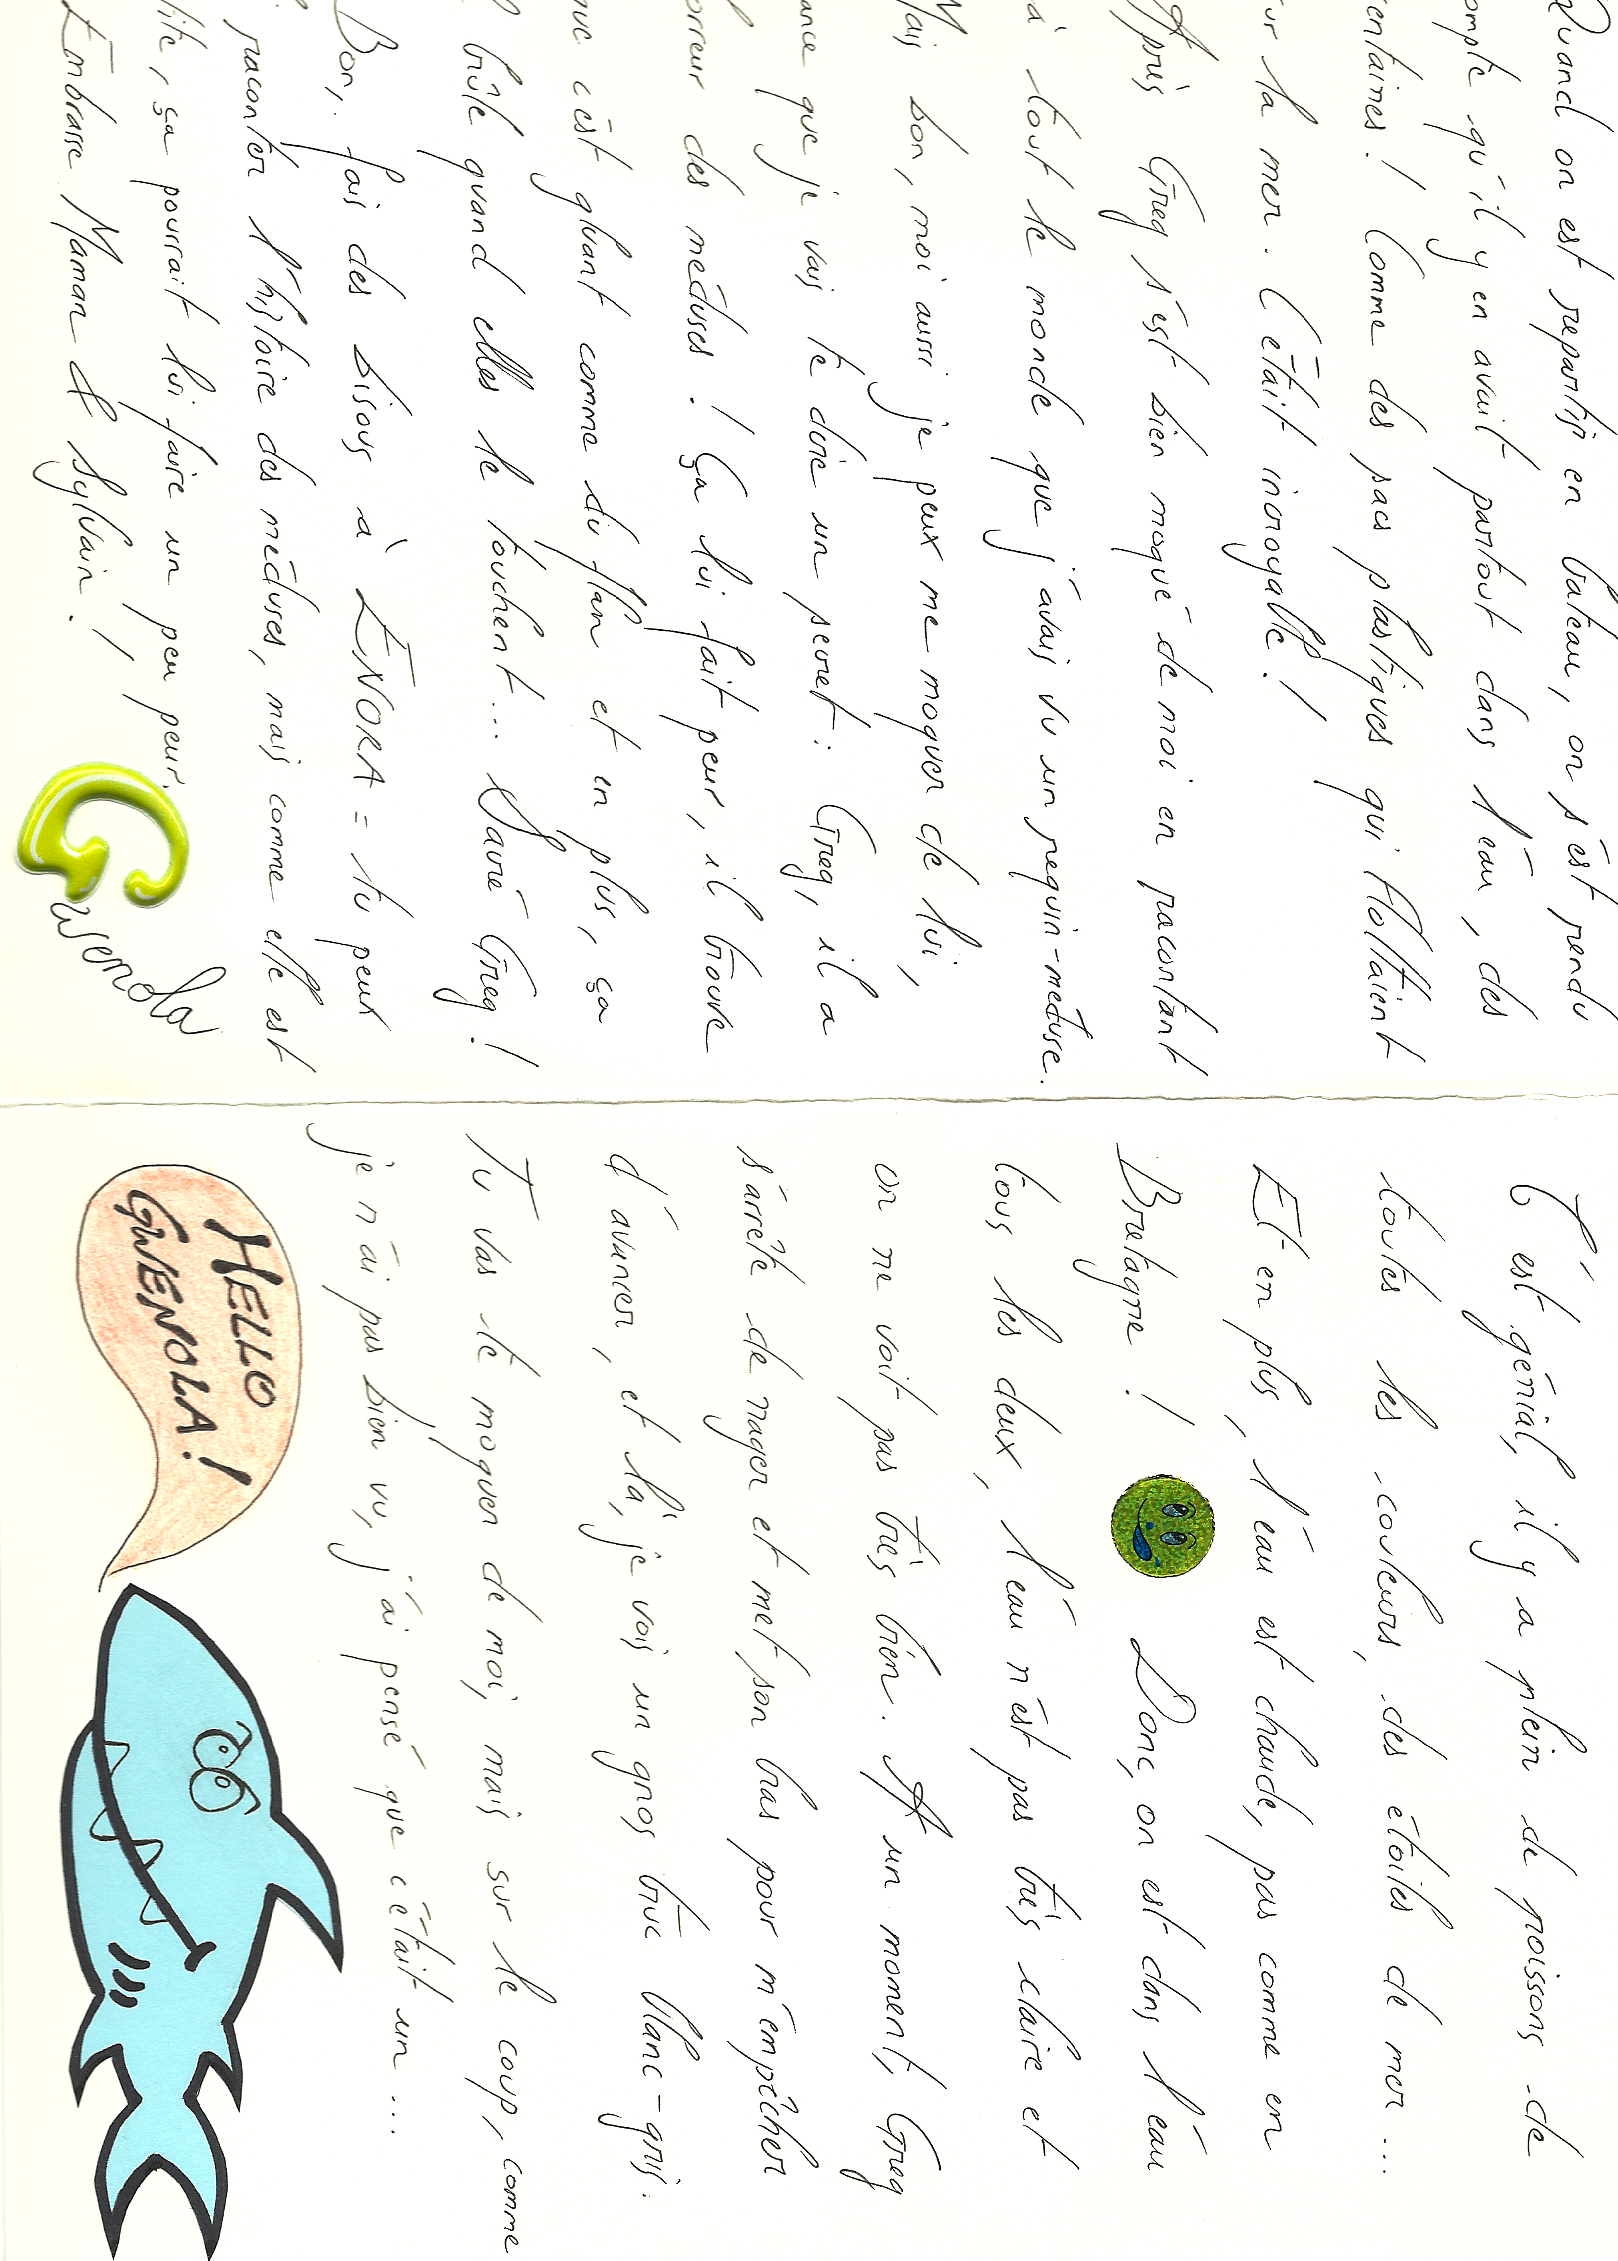 Quand on est repartis en bateau, on s'est rendu
ompte qu'il y en avait partout dans l'eau, des
entaines ! Comme des sacs plastiques qui flottaient
ur la mer. C'était incroyable !
Après Greg s'est bien moqué de moi en racontant
à tout le monde que j'avais vu un requin-méduse.
Mais bon, moi aussi je peux me moquer de lui,
ance que je vais te dire un secret : Greg, il a
orreur des méduses ! Ça lui fait peur, il trouve
que c'est gluant comme du flan et en plus, ça
brûle quand elles le touchent... Sacré Greg !
Bon, fais des bisous à ENORA = tu peux
raconter l'histoire des méduses, mais comme elle est
tite, ça pourrait lui faire un peu peur.
Embrasse Maman & Sylvain !
Gwenola
C'est génial, il y a plein de poissons de
toutes les couleurs, des étoiles de mer ...
Et en plus, l'eau est chaude, pas comme en
Bretagne ! Donc, on est dans l'eau
tous les deux, l'eau n'est pas très claire et
on ne voit pas très bien. A un moment, Greg
s'arrête de nager et met son bras pour m'empêcher
d'avancer, et là, je vois un gros truc blanc-gris.
Tu vas te moquer de moi, mais sur le coup, comme
je n'ai pas bien vu, j'ai pensé que c'était un ...
HELLO
GWENOLA !